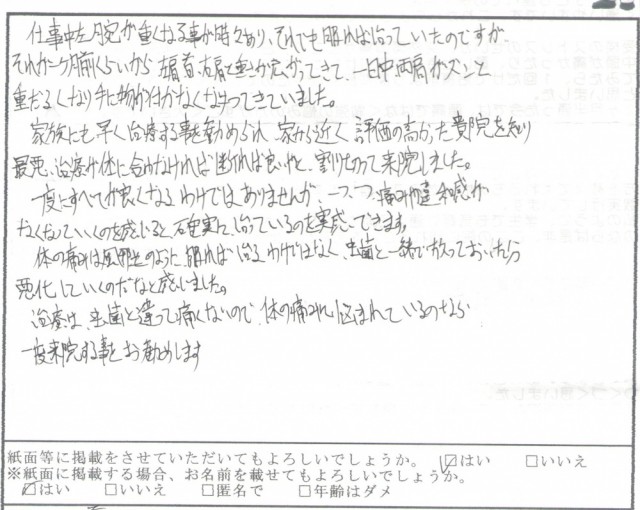 仕事中左腕が重くなる事が時々あり、それでも眠れば治っていたのですが、
それが一ヶ月前くらいから左肩首、右肩と重さが広がってきて、一日中両肩がズンと
重だるくなり手に物が付かなくなってきていました。
家族にも早く治療する事を勧められ、家から近く評価の高かった貴院を知り
最悪、治療が体に合わなければ断れば良いやと、割り切って来院しました。
一度にすべてが良くなるわけではありませんが、一つ一つ痛みや違和感が
なくなっていくのを感じると、確実に治っているのを実感できます。
体の痛みは風邪のように眠れば治るわけではなく、虫歯と一緒で放っておいたら
悪化していくのだなと感じました。
治療は、虫歯と違って痛くないので、体の痛みに悩まれているのなら
一度来院する事をお勧めします
紙面等に掲載をさせていただいてもよろしいでしょうか。 ☑はい □いいえ
※紙面に掲載する場合、お名前を載せてもよろしいでしょうか。
☑はい □いいえ □匿名で □年齢はダメ